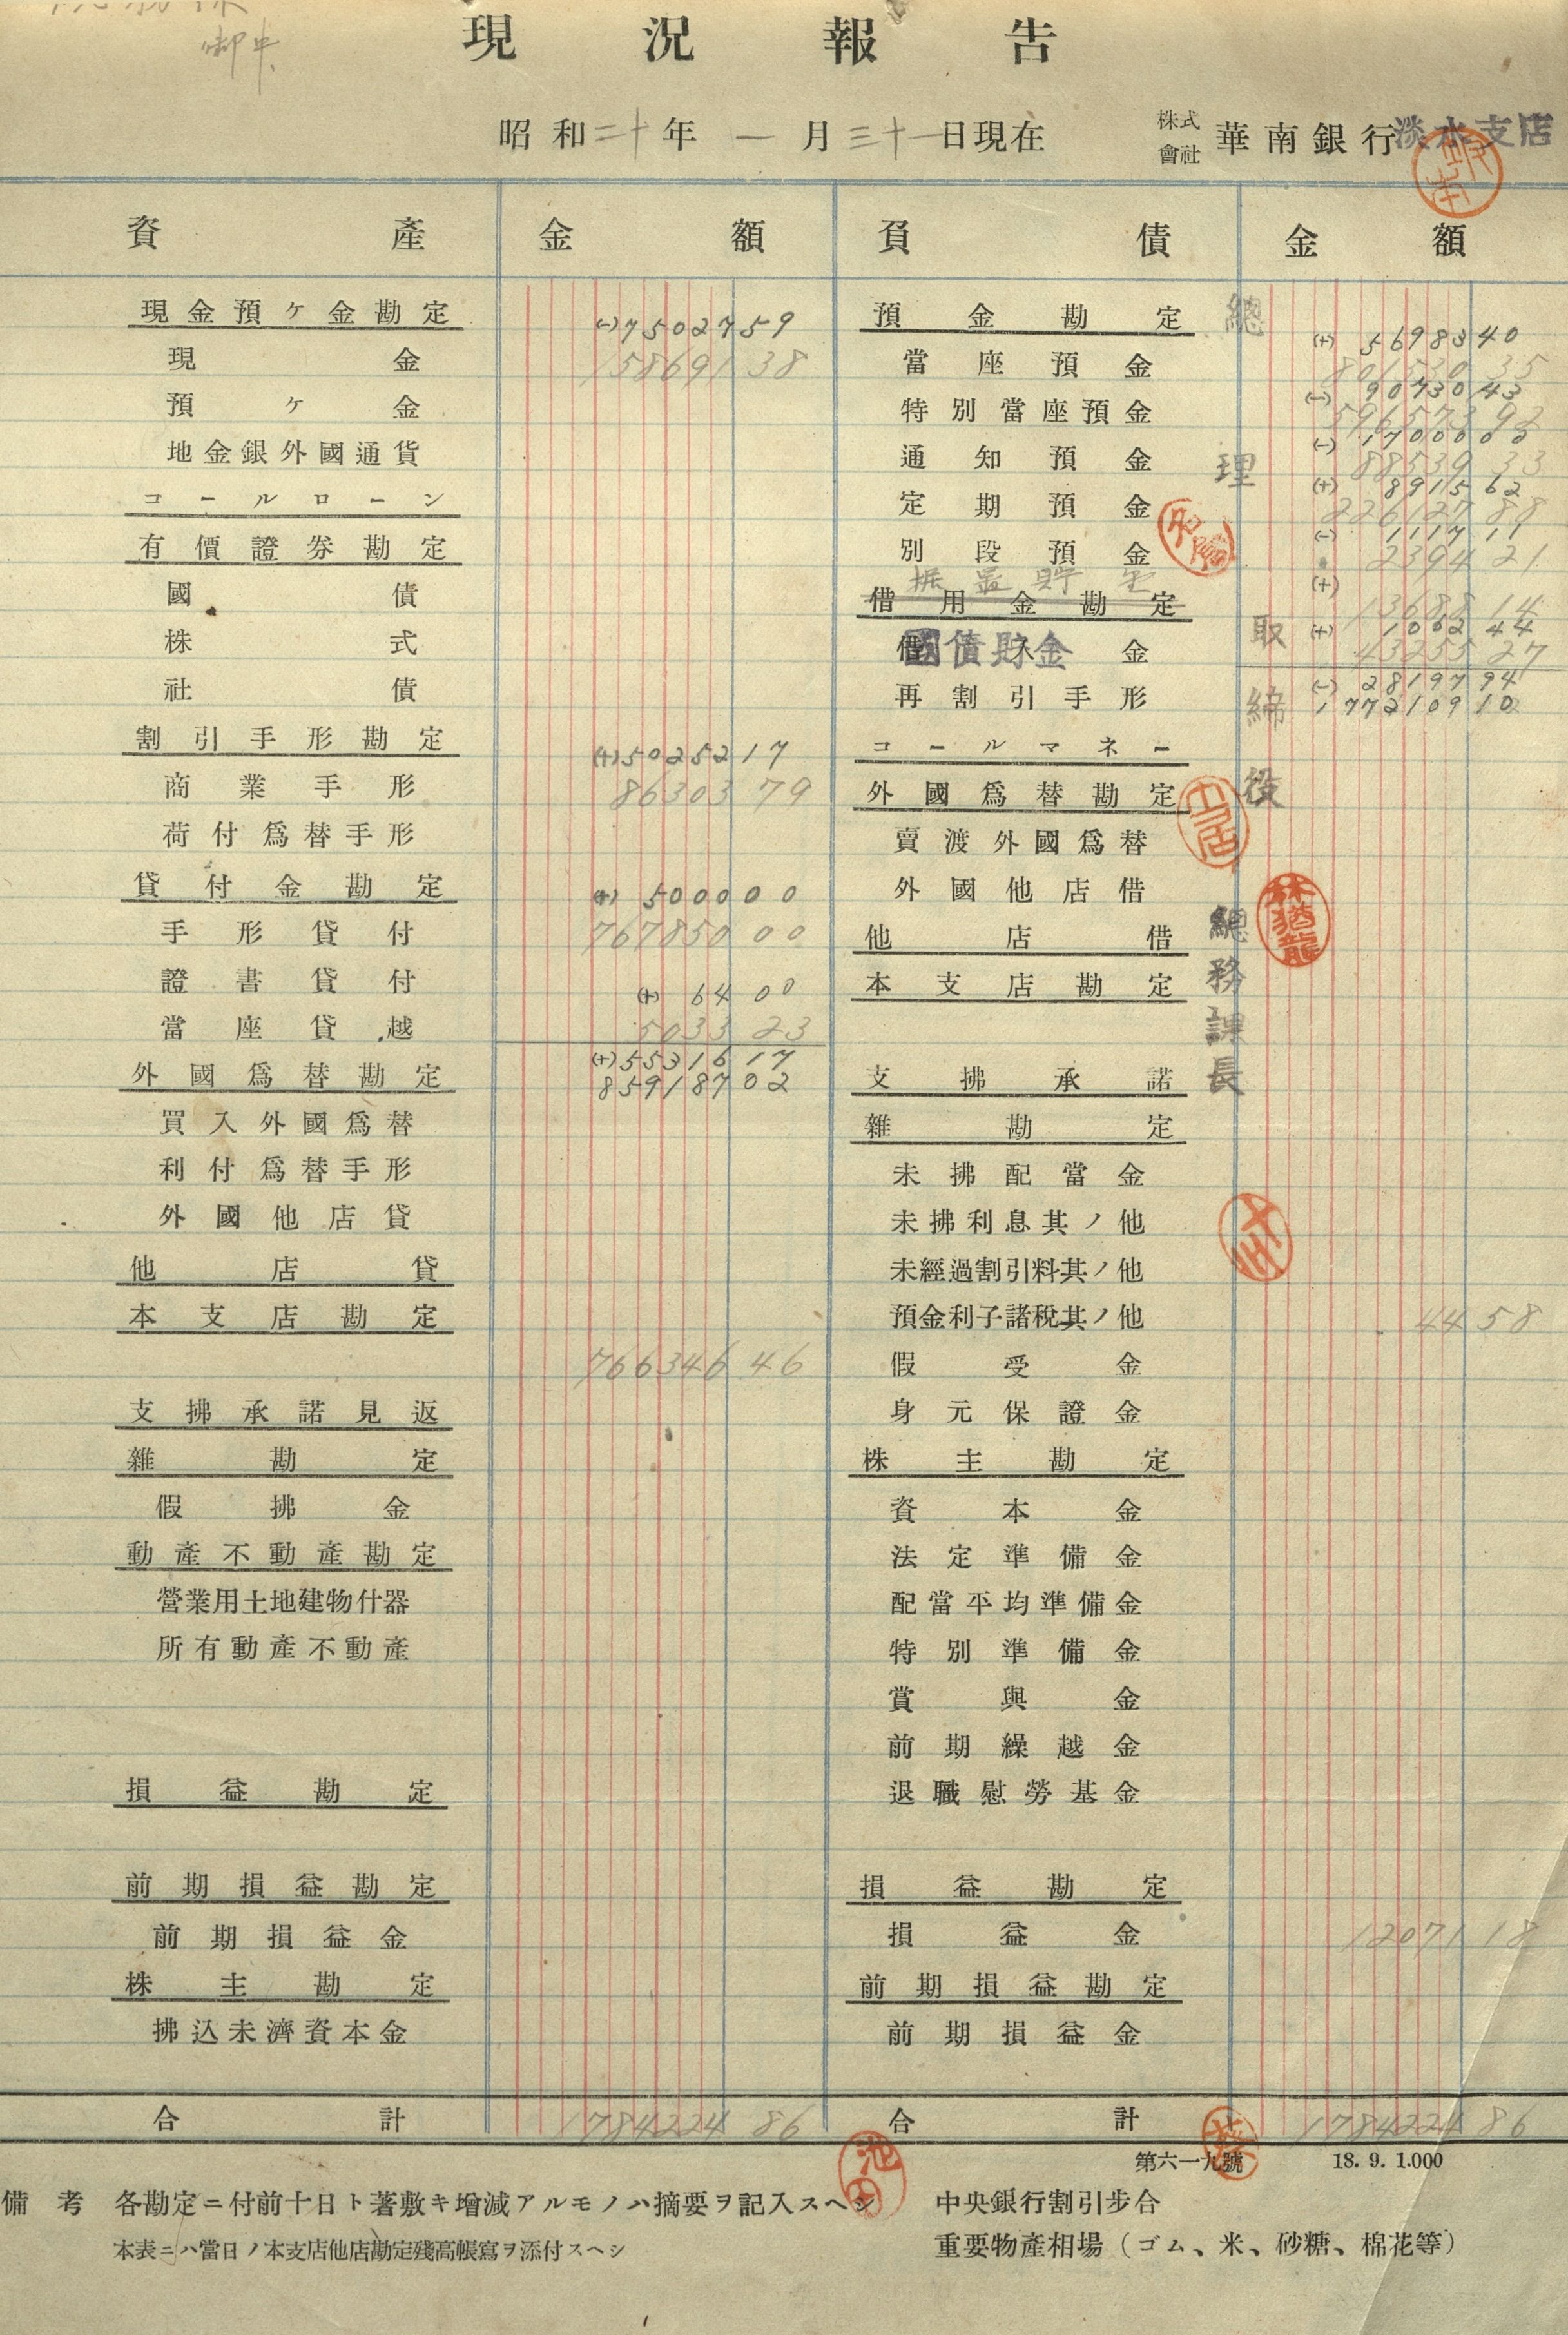 現況報告
昭和二十年一月三十一日現在
株式會社 華南銀行 淡水支店
資產 金額
現金預ケ金勘定 (-)75027 59
現金 158691 38
預ケ金
地金銀外國通貨
コールローン
有價證券勘定
國債
株式
社債
割引手形勘定 (+)50252 17
商業手形 86303 79
荷付爲替手形
貸付金勘定 (+)5000 00
手形貸付 767850 00
證書貸付 (+)64 00
當座貸越 5033 23
外國爲替勘定 (+)55316 17
859187 02
買入外國爲替
利付爲替手形
外國他店貸
他店貸
本支店勘定
766346 46
支拂承諾見返
雜勘定
假拂金
動產不動產勘定
營業用土地建物什器
所有動產不動產
損益勘定
前期損益勘定
前期損益金
株主勘定
拂込未濟資本金
合計 1784224 86
負債 金額
預金勘定 (+)56983 40
當座預金 801530 35
(-)90730 43
特別當座預金 596573 92
(-)17000 00
通知預金 88539 33
(+)8915 62
定期預金 226127 88
(-)1117 11
別段預金 2394 21
(+)
据置貯金 13688 14
借用金勘定 (+)1062 44
國債貯金 43255 27
借入金
(-)28197 94
再割引手形 1772109 10
コールマネー
外國爲替勘定
賣渡外國爲替
外國他店借
他店借
本支店勘定
支拂承諾
雜勘定
未拂配當金
未拂利息其ノ他
未經過割引料其ノ他
預金利子諸稅其ノ他 44 58
假受金
身元保證金
株主勘定
資本金
法定準備金
配當平均準備金
特別準備金
賞與金
前期繰越金
退職慰勞基金
損益勘定
損益金 12071 18
前期損益勘定
前期損益金
合計 1784224 86
總理
取締役
林猶龍
總務課長
池田
第六一九號 18. 9. 1.000
備考 各勘定ニ付前十日ト著敷キ增減アルモノハ摘要ヲ記入スヘシ
本表ニハ當日ノ本支店他店勘定殘高帳寫ヲ添付スヘシ
中央銀行割引步合
重要物產相場（ゴム、米、砂糖、棉花等）